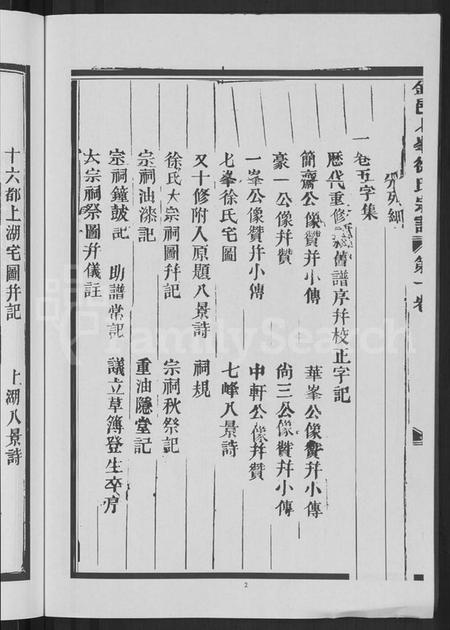 金邑七峯徐氏宗譜 第一卷
分列細
一卷五字集
歷代重修舊譜序幷校正字記
簡齋公像贊幷小傳 華峯公像贊幷小傳
豪一公像贊幷贊 尙三公像贊幷小傳
一峯公像贊幷小傳 中軒公像幷贊
七峯徐氏宅圖 七峰八景詩
又十修附入原題八景詩 祠規
徐氏大宗祠圖幷記 宗祠秋祭記
宗祠油漆記 重油隱堂記
宗祠鐘鼓記 助譜常記 議立草簿登生卒序
大宗祠祭圖幷儀註
十六都上湖宅圖幷記 上湖八景詩
2
FamilySearch